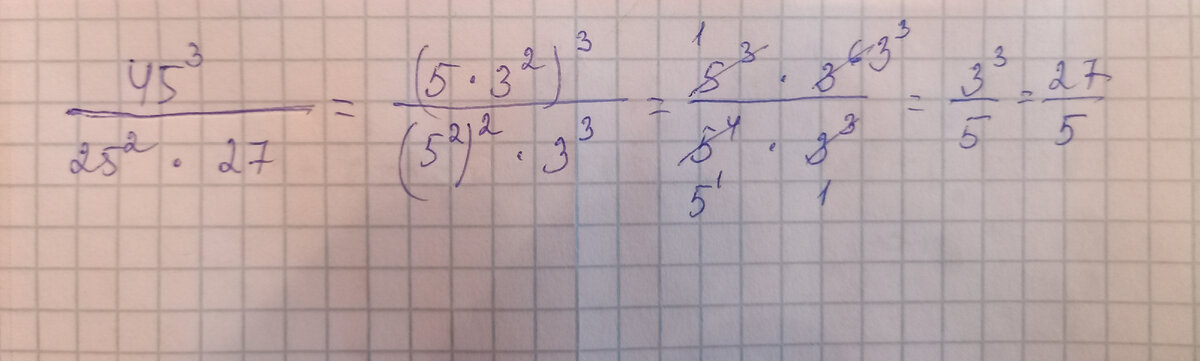 45³ / (25² · 27) = (5 · 3²)³ / ((5²)² · 3³) = 5³ · 3⁶ / (5⁴ · 3³) = 3³ / 5 = 27 / 5
1 3³
5¹ 1